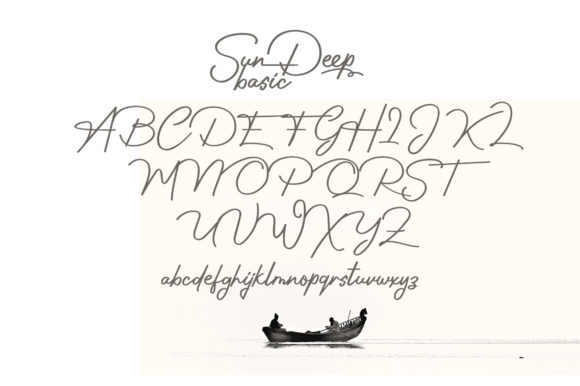 Sun Deep
basic
ABCDEFGHIJKL
MNOPQRST
UVWXYZ
abcdefghijklmnopqrstuvwxyz